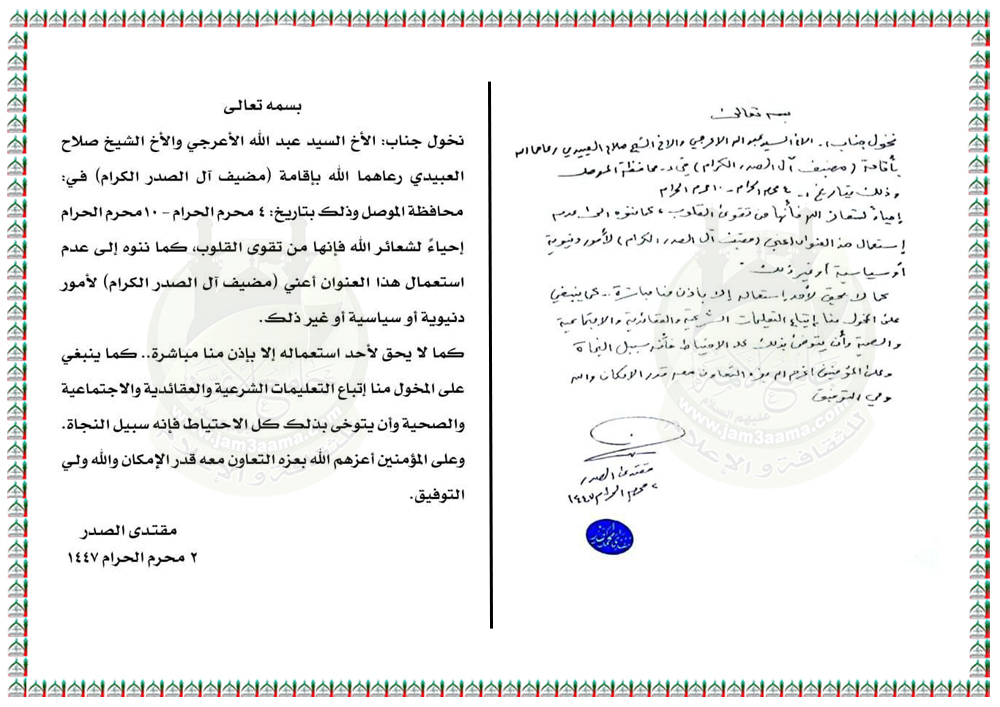 بسمه تعالى
نخول جناب:. الاخ السيد عبد الله الاعرجي والاخ الشيخ صلاح العبيدي رعاهما الله
بأقامة (مضيف آل الصدر الكرام) في:. محافظة الموصل
وذلك بتاريخ:. ٤ محرم الحرام - ١٠ محرم الحرام
إحياءً لشعائر الله فأنها من تقوى القلوب، كما ننوه الى عدم
إستعمال هذا العنوان اعني (مضيف آل الصدر الكرام) لأمور دنيوية
أو سياسية أو غير ذلك
كما لا يحق لأحد إستعماله إلا بأذن منا مباشرة.. كما ينبغي
على المخول منا إتباع التعليمات الشرعية والعقائدية والاجتماعية
والصحية وأن يتوخى بذلك كل الاحتياط فأنه سبيل النجاة
وعلى المؤمنين اعزهم الله بعزه التعاون معه قدر الامكان والله
ولي التوفيق
مقتدى الصدر
٢ محرم الحرام ١٤٤٧
بسمه تعالى
نخول جناب: الأخ السيد عبد الله الأعرجي والأخ الشيخ صلاح
العبيدي رعاهما الله بإقامة (مضيف آل الصدر الكرام) في:
محافظة الموصل وذلك بتاريخ: ٤ محرم الحرام - ١٠ محرم الحرام
إحياءً لشعائر الله فإنها من تقوى القلوب، كما ننوه إلى عدم
استعمال هذا العنوان أعني (مضيف آل الصدر الكرام) لأمور
دنيوية أو سياسية أو غير ذلك.
كما لا يحق لأحد استعماله إلا بإذن منا مباشرة.. كما ينبغي
على المخول منا إتباع التعليمات الشرعية والعقائدية والاجتماعية
والصحية وأن يتوخى بذلك كل الاحتياط فإنه سبيل النجاة.
وعلى المؤمنين أعزهم الله بعزه التعاون معه قدر الإمكان والله ولي
التوفيق.
مقتدى الصدر
٢ محرم الحرام ١٤٤٧
www.jam3aama.com
للثقافة و الإعلام